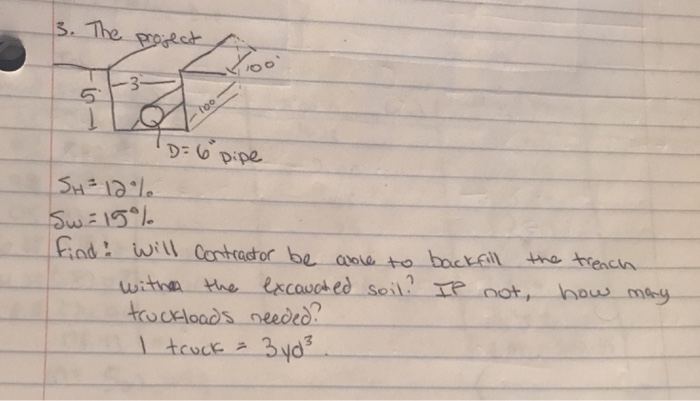 3. The project
100'
3
5'
100
D=6" pipe
SH = 12%
Sw = 15%
Find: will contractor be able to backfill the trench
with the excavated soil? If not, how many
truckloads needed?
1 truck = 3 yd³.